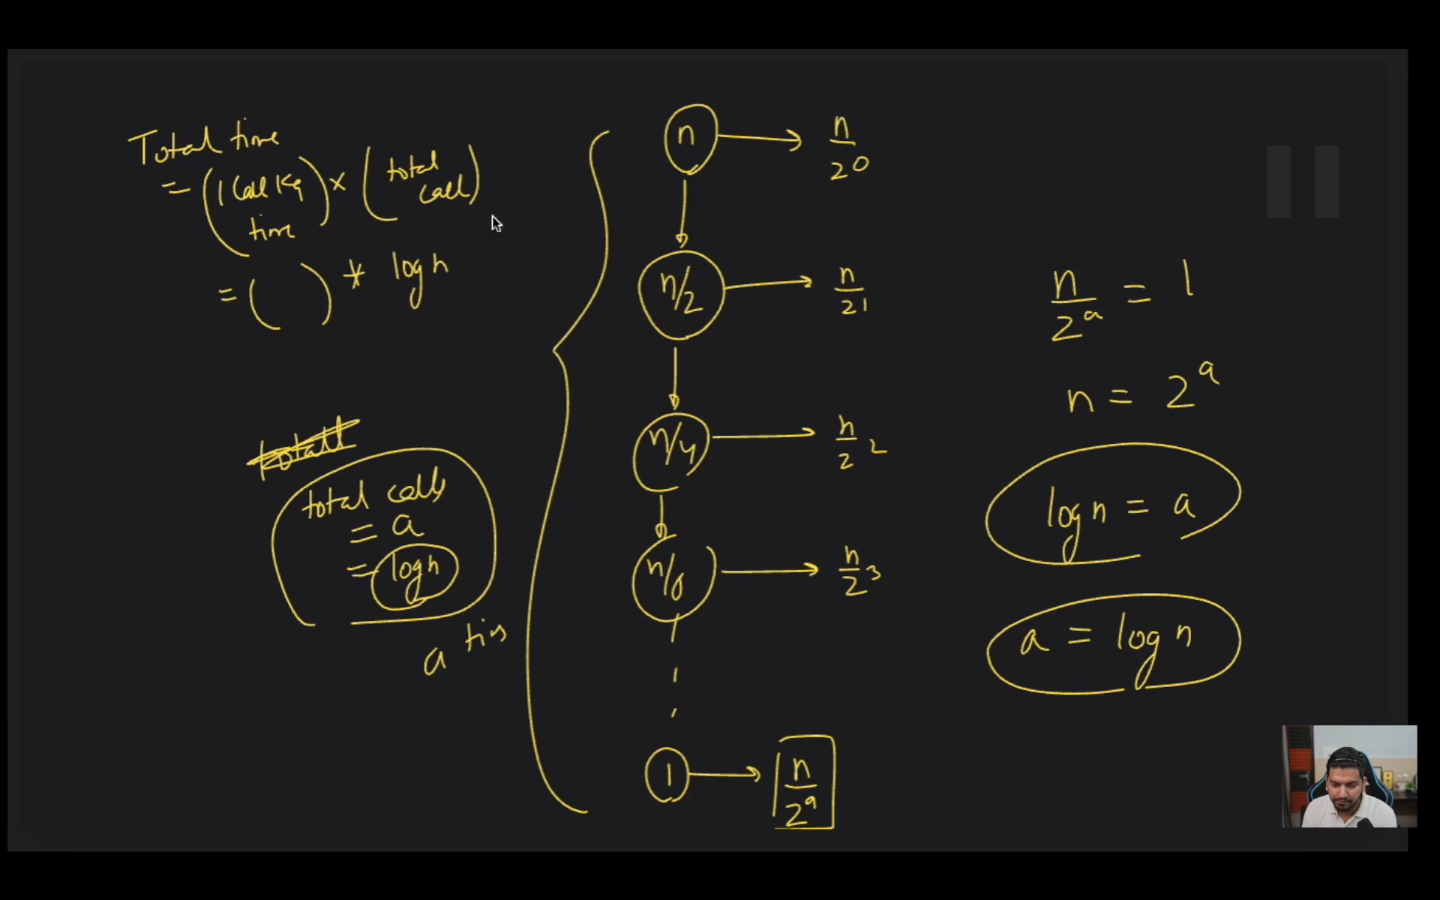 Total time
= (1 Call Ka time) × (total call)
= ( ) * log n
total calls
= a
= log n
a
n → n/2^0
n/2 → n/2^1
n/4 → n/2^2
n/8 → n/2^3
1 → n/2^a
n/2^a = 1
n = 2^a
log n = a
a = log n